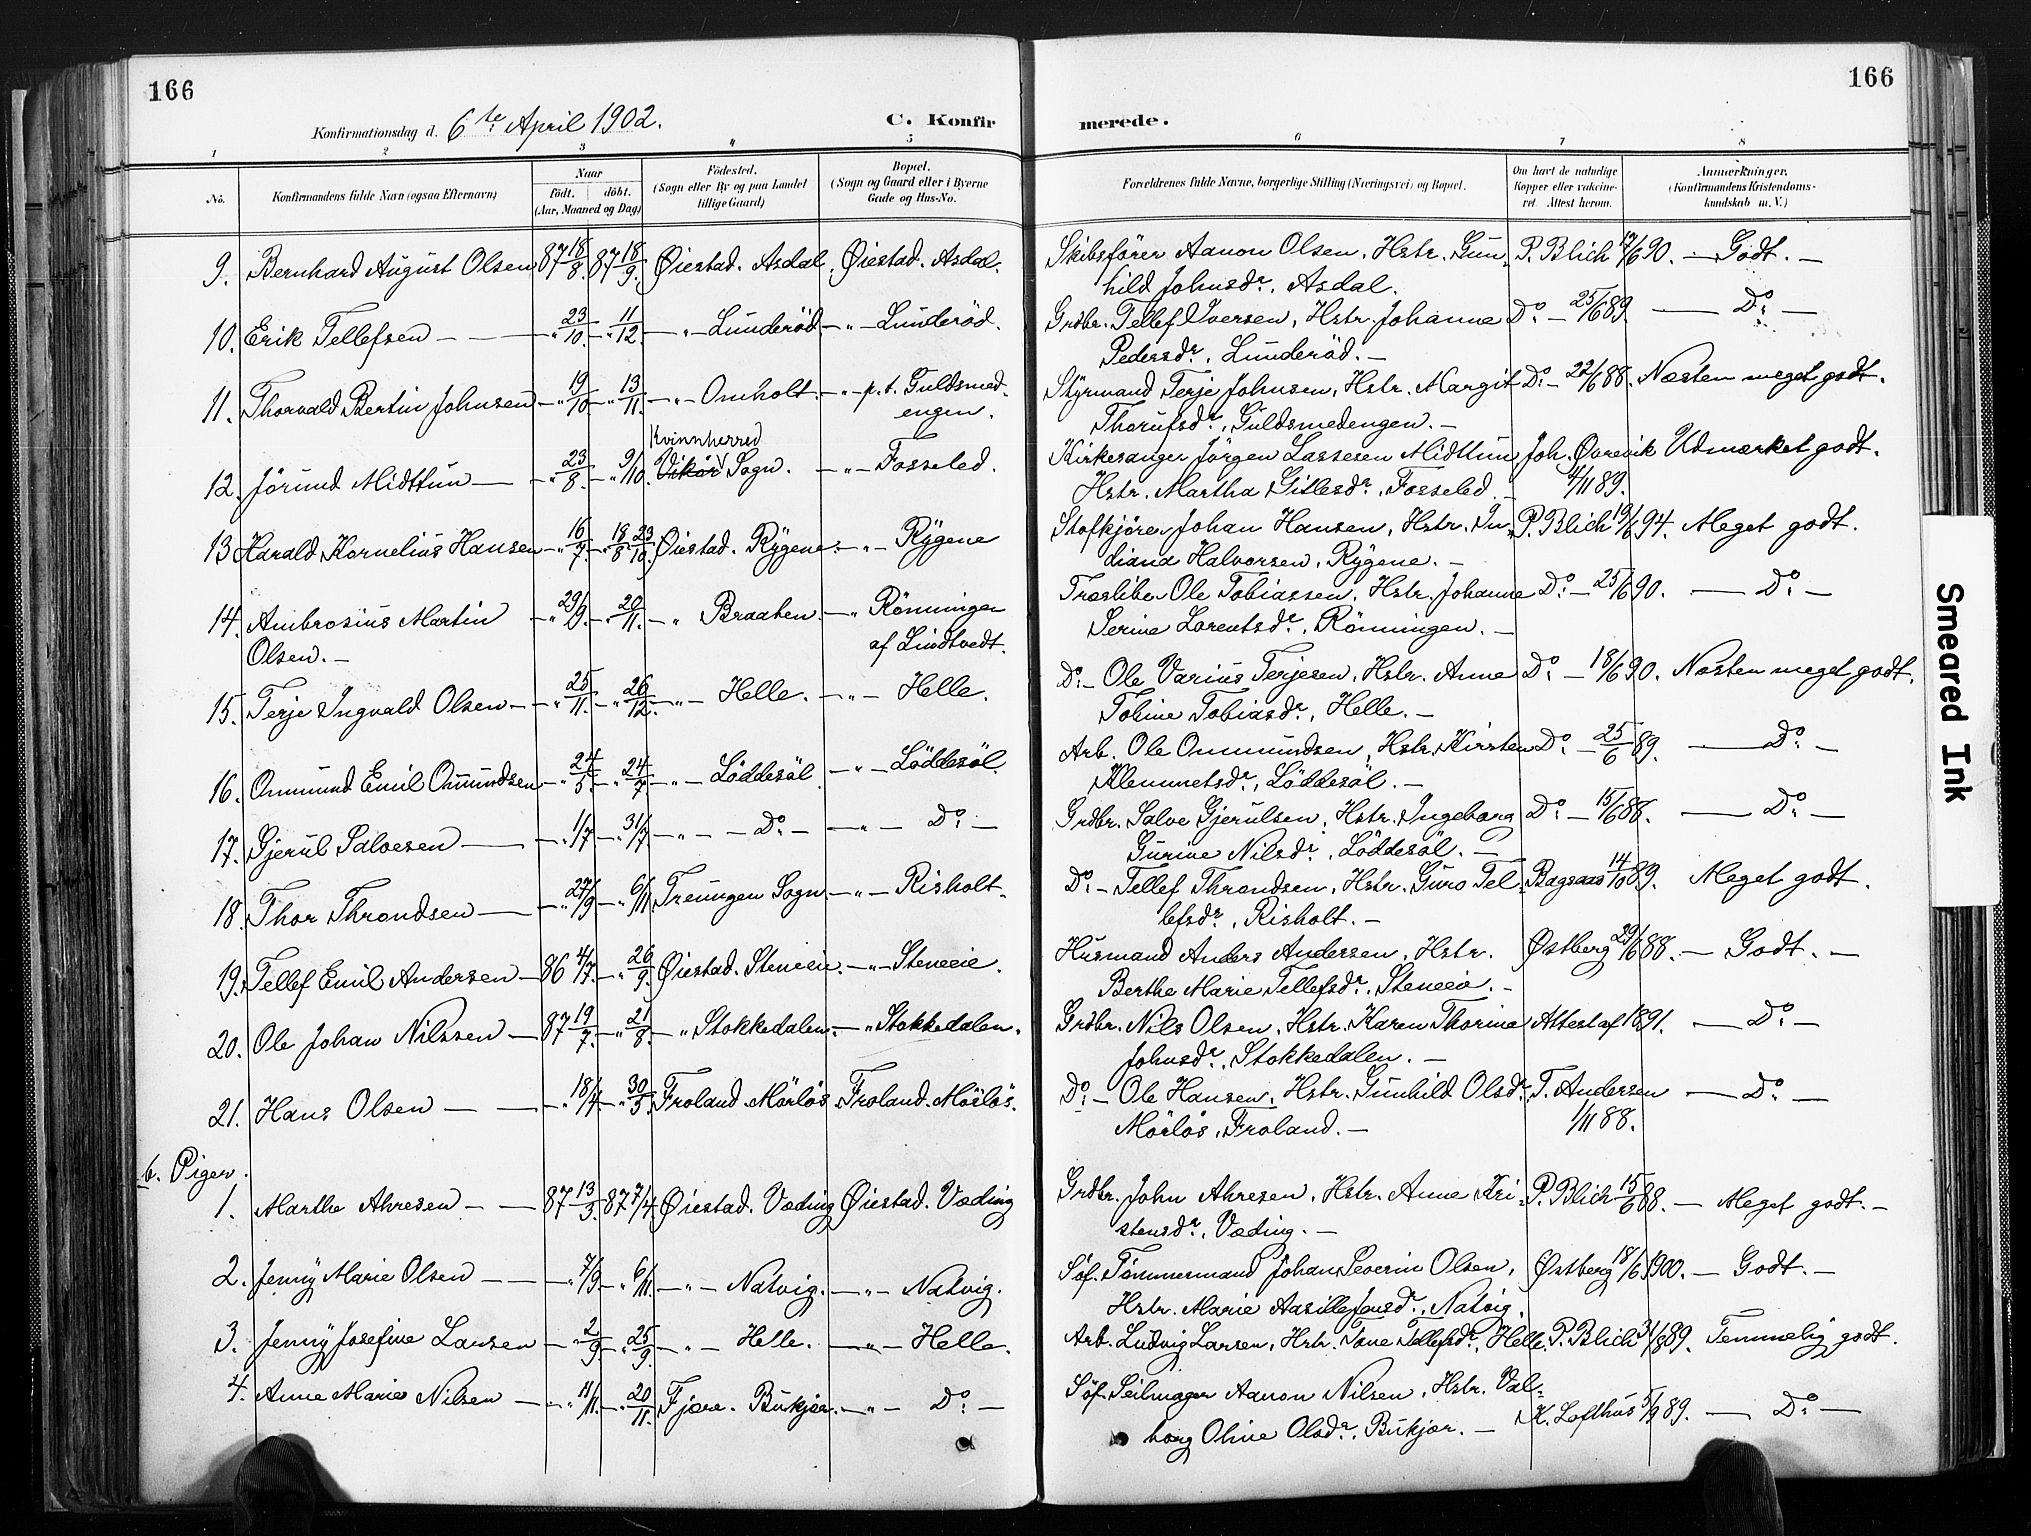 166
166
Konfirmationsdag d. 6te April 1902.
C. Konfir
merede.
1 2 3 4 5 6 7 8
No.
Konfirmandens fulde Navn (ogsaa Efternavn)
Naar
født. døbt.
(Aar, Maaned og Dag)
Födested.
(Sogn eller By og paa Landet
tillige Gaard)
Bopæl.
(Sogn og Gaard eller i Byerne
Gade og Hus-No.
Forældrenes fulde Navne, borgerlige Stilling (Næringsvei) og Bopæl.
Om havt de naturlige
Kopper eller vakcine-
ret. Attest herom.
Anmærkninger.
(Konfirmandens Kristendoms-
kundskab m. V.)
9. Bernhard August Olsen 87 18/8. 87 18/9. Øiestad. Asdal. Øiestad. Asdal. Skibsfører Aanon Olsen, Hstr. Gun- P. Blich 17/6 90. — Godt. —
hild Johnsdr. Asdal.
10. Erik Tellefsen — — " 23/10. — " 11/12. — " Lunderöd. — " — Lunderöd. Grdbr. Tellef Iversen, Hstr. Johanne Do — 25/6 89. — Do —
Pedersdr. Lunderöd. —
11. Thorvald Bertin Johnsen — " 19/10 — " 13/11. — " Omholt. — " p.t. Guldsmed- Styrmand Terje Johnsen, Hstr. Margit Do — 22/6 88. Næsten meget godt.
engen. Thorufsdr. Guldsmedengen. —
Kvinnherred
12. Jörund Midttun — " 23/8. — " 9/10. Vikör Sogn. — " — Fosseled. Kirkesanger Jörgen Lassesen Midttun Joh. Øvrevik Udmærket godt.
Hstr. Martha Gitlesdr. Fosseled. — 4/11 89.
13. Harald Kornelius Hansen — " 16/7. — " 18/8 23/10. Øiestad. Rygene. — " — Rygene Stofkjörer Johan Hansen, Hstr. In- P. Blich 19/6 94. Meget godt.
diana Halvorsen, Rygene. —
14. Ambrosius Martin — " 29/9. — " 20/11. — " Braaten. — " Rönningen Træskibr. Ole Tobiassen, Hstr. Johanne Do — 25/6 90. — Do —
Olsen. — af Lindtvedt. Serine Lorentsdr. Rönningen. —
15. Terje Ingvald Olsen — " 25/11. — " 26/12. — " — Helle. — " — Helle. Do — Ole Varius Terjesen, Hstr. Anne Do — 18/6 90. Næsten meget godt.
Tobine Tobiasdr. Helle. —
16. Ommund Emil Ommundsen — " 24/5. — " 24/7 — " — Löddesöl — " — Löddesöl. Arb. Ole Ommundsen, Hstr. Kirsten Do — 25/6 89. — Do —
Klemmetsdr. Löddesöl. —
17. Gjerul Salvesen — " 1/7 — " 31/7. — " — Do — — " — Do — Grdbr. Salve Gjerulsen, Hstr. Ingeborg Do — 15/6 88. — Do —
Gurine Nilsdr. Löddesöl. —
18. Thor Throndsen — " 27/9 — " 6/11. Treungen Sogn — " — Risholt. Do — Tellef Throndsen, Hstr. Guro Tel- Bagsaas 14/10 89. Meget godt.
lefsdr. Risholt. —
19. Tellef Emil Andersen — 86 4/7. — " 26/9. Øiestad. Steneie. — " — Steneie. Husmand Anders Andersen, Hstr. Østberg 29/6 88. — Godt. —
Berthe Marie Tellefsdr. Steneie. —
20. Ole Johan Nilssen — 87 19/7. — " 21/8. — " Stokkedalen. — " Stokkedalen. Grdbr. Nils Olsen, Hstr. Karen Thorine Attest af 1891. — Do —
Johnsdr. Stokkedalen. —
21. Hans Olsen — — " 18/4 — " 30/5. Froland. Mörlös. Froland. Mörlös. Do — Ole Hansen, Hstr. Gunhild Olsdr. T. Andersen — Do —
Mörlös, Froland. — 1/11 88.
b. Piger.
1. Marthe Ahresen — — 87 13/3. 87 7/4. Øiestad. Væding Øiestad. Væding Grdbr. John Ahresen, Hstr. Anne Kri- P. Blich 15/6 88. — Meget godt. —
stensdr. Væding. —
2. Jenny Marie Olsen — — " 7/9 — " 6/11. — " — Natvig. — " — Natvig. Söf. Tömmermand Johan Severin Olsen, Østberg 18/6 1900. — Godt. —
Hstr. Marie Aasille Jensdr. Natvig.
3. Jenny Josefine Larsen — " 2/9. — " 25/9. — " — Helle. — " — Helle. Arb. Ludvig Larsen, Hstr. Tone Tellefsdr. Helle. P. Blich 31/8 89. Temmelig godt.
4. Anne Marie Nilsen — " 11/11. — " 20/11. Fjære. Bukjær. — " — Do — Söf. Seilmager Aanon Nilsen, Hstr. Val- K. Lofthus 5/9 89. — Do —
borg Oline Olsdr. Bukjær. —
Smeared Ink